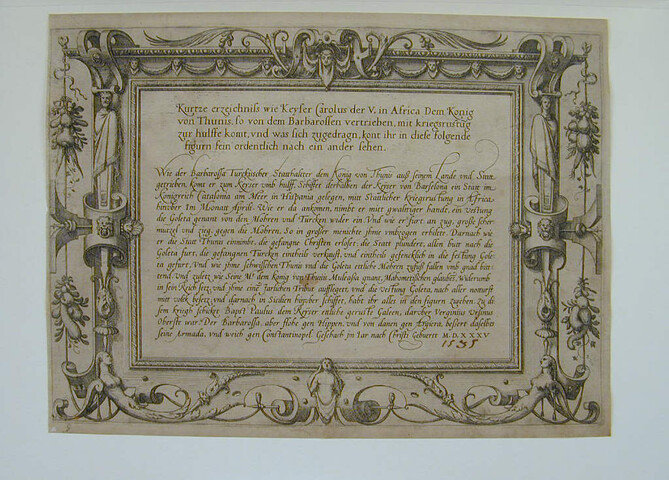 Kurtze erzeichniss wie Keyser Carolus der V. in Africa Dem Konig
von Thunis, so von dem Barbarossen vertrieben, mit kriegsrustug
zur hulffe komt, vnd was sich zugedragn, kont ihr in diese folgende
figurn fein ordentlich nach ein ander sehen.
Wie der Barbarossa Turckischer Statthalter dem Konig von Thunis auß seinem Lande vnd Statt
getrieben, komt er zum Keyser vmb hulff. Schiffet derhalben der Keyser von Barselona ein Statt im
Konigreich Catalonia am Meer in Hispania gelegen, mit Stattlicher Kriegsrustung in Africa
hinvber Im Monatt Aprili. Wie er da ankomen, nimbt er mitt gwaltiger handt, ein Vestung
die Goleta genant von den Mohren vnd Turcken wider ein. Vnd wie er fort an zug, große scher
mutzel vnd zieg, gegen die Mohren, So in großer menichte ihme entzogen erhilter. Darnach wie
er die Statt Thunis einnimbt, die gefangne Christen erloset, die Statt plundert, allen butt nach die
Goleta furt, die gefangnen Türcken eintheils verkaufft, vnd eintheils gefencklich in die festung Gole
ta gefurt, Vnd wie ihme zwischen Thunis vnd die Goleta ettliche Mohren zufuß fallen vmb gnad bitt
tend. Vnd zuletz wie Seine Mt. dem Konig von Thunis Muleassa gnant, Mahometischen glaubes, widerumb
in sein Reich setz, vnd ihme eine Jarlichen Tribut aufflegett, vnd die Vestung Goleta, nach aller notturft
mit volck besetz vnd darnach in Sicilien hinvber schiffet, habt ihr alles in den figuren zusehen. Zu di
sem kriegh schicket Bapst Paulus dem Keyser ettliche geruste Galeen, darvber Verginius Vrsinus
Oberster war. Der Barbarossa, aber flohe gen Hippon, vnd von danen gen Algiera, bessert daselbst
seine Armada, vnd weich gen Constantinopel. Geschach im iar nach Christi Geburtt M.D.XXXV
1535